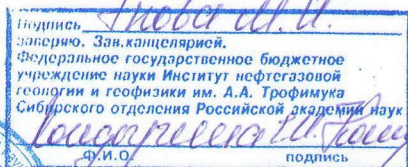 Подпись
заверяю. Зав.канцелярией.
Федеральное государственное бюджетное
учреждение науки Институт нефтегазовой
геологии и геофизики им. А.А. Трофимука
Сибирского отделения Российской академии наук
Ф.И.О. подпись